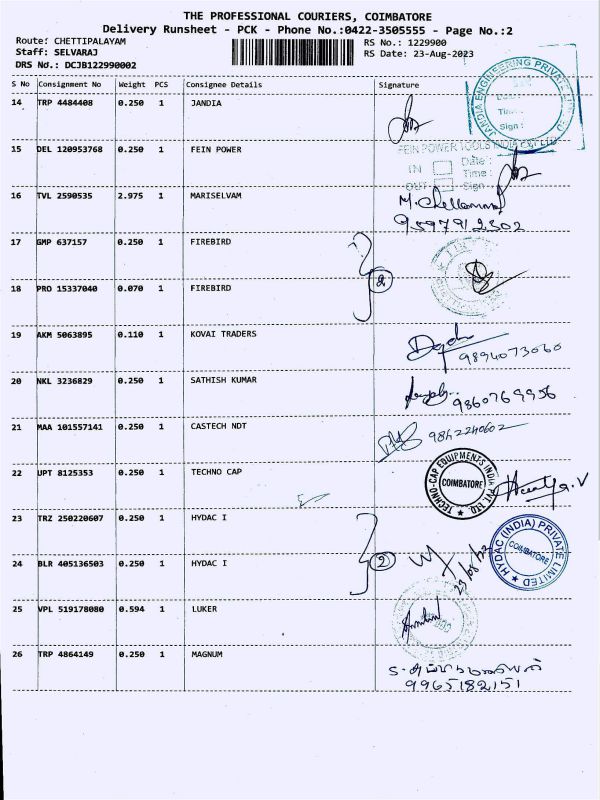 THE PROFESSIONAL COURIERS, COIMBATORE
Delivery Runsheet - PCK - Phone No.:0422-3505555 - Page No.:2
Route: CHETTIPALAYAM
RS No.: 1229900
Staff: SELVARAJ
RS Date: 23-Aug-2023
DRS No.: DCJB122990002
S No Consignment No Weight PCS Consignee Details Signature
14 TRP 4484408 0.250 1 JANDIA
JANDIA ENGINEERING PRIVATE LIMITED
Date:
Time:
Sign:
15 DEL 120953768 0.250 1 FEIN POWER
FEIN POWER TOOLS INDIA PVT LTD
IN Date:
Time:
OUT Sign
16 TVL 2590535 2.975 1 MARISELVAM
M. Chellammal
9597912302
17 GMP 637157 0.250 1 FIREBIRD
2
18 PRO 15337040 0.070 1 FIREBIRD
19 AKM 5063895 0.110 1 KOVAI TRADERS
9894073060
20 NKL 3236829 0.250 1 SATHISH KUMAR
9860769956
21 MAA 101557141 0.250 1 CASTECH NDT
9842240602
22 JPT 8125353 0.250 1 TECHNO CAP
TECHNO-CAP EQUIPMENTS INDIA PVT LTD
COIMBATORE
23 TRZ 250220607 0.250 1 HYDAC I
HYDAC (INDIA) PRIVATE LIMITED
COIMBATORE
2
23/08/23
24 BLR 405136503 0.250 1 HYDAC I
25 VPL 519178080 0.594 1 LUKER
26 TRP 4864149 0.250 1 MAGNUM
9965182151